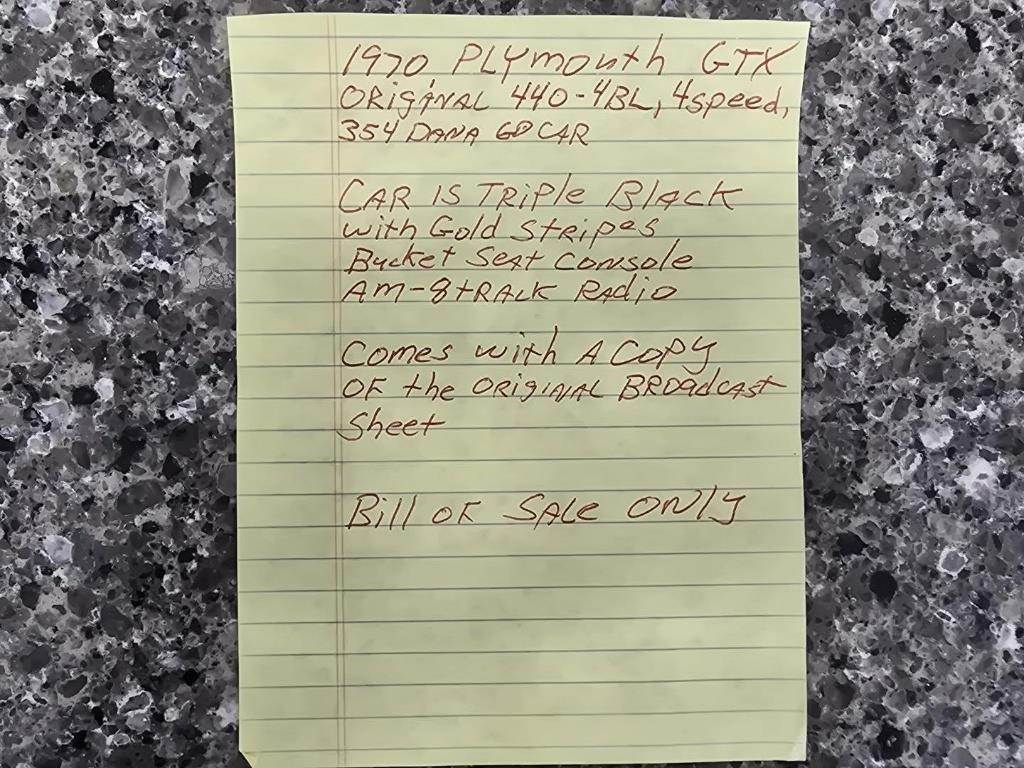 1970 PLYmouth GTX
ORigiNAL 440-4BL, 4speed,
354 DANA 60 CAR
CAR IS TRiPle BlACK
with Gold StRipes
Bucket Seat Console
AM-8tRACK RAdio
Comes with A COPY
OF the ORIGINAL BROadcAst
Sheet
Bill OF SAle ONly